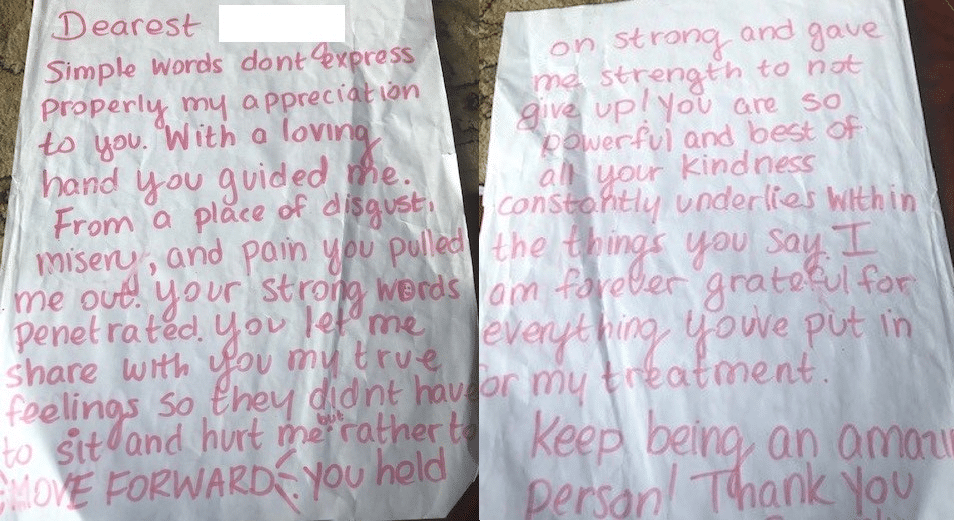 Dearest
Simple words dont express
properly my appreciation
to you. With a loving
hand you guided me.
From a place of disgust,
misery, and pain you pulled
me out! your strong words
penetrated. You let me
share with you my true
feelings so they didnt have
to sit and hurt me but rather to
MOVE FORWARD. You held
on strong and gave
me strength to not
give up! you are so
powerful and best of
all your kindness
constantly underlies within
the things you say. I
am forever grateful for
everything youve put in
for my treatment.
Keep being an amazin
person! Thank you